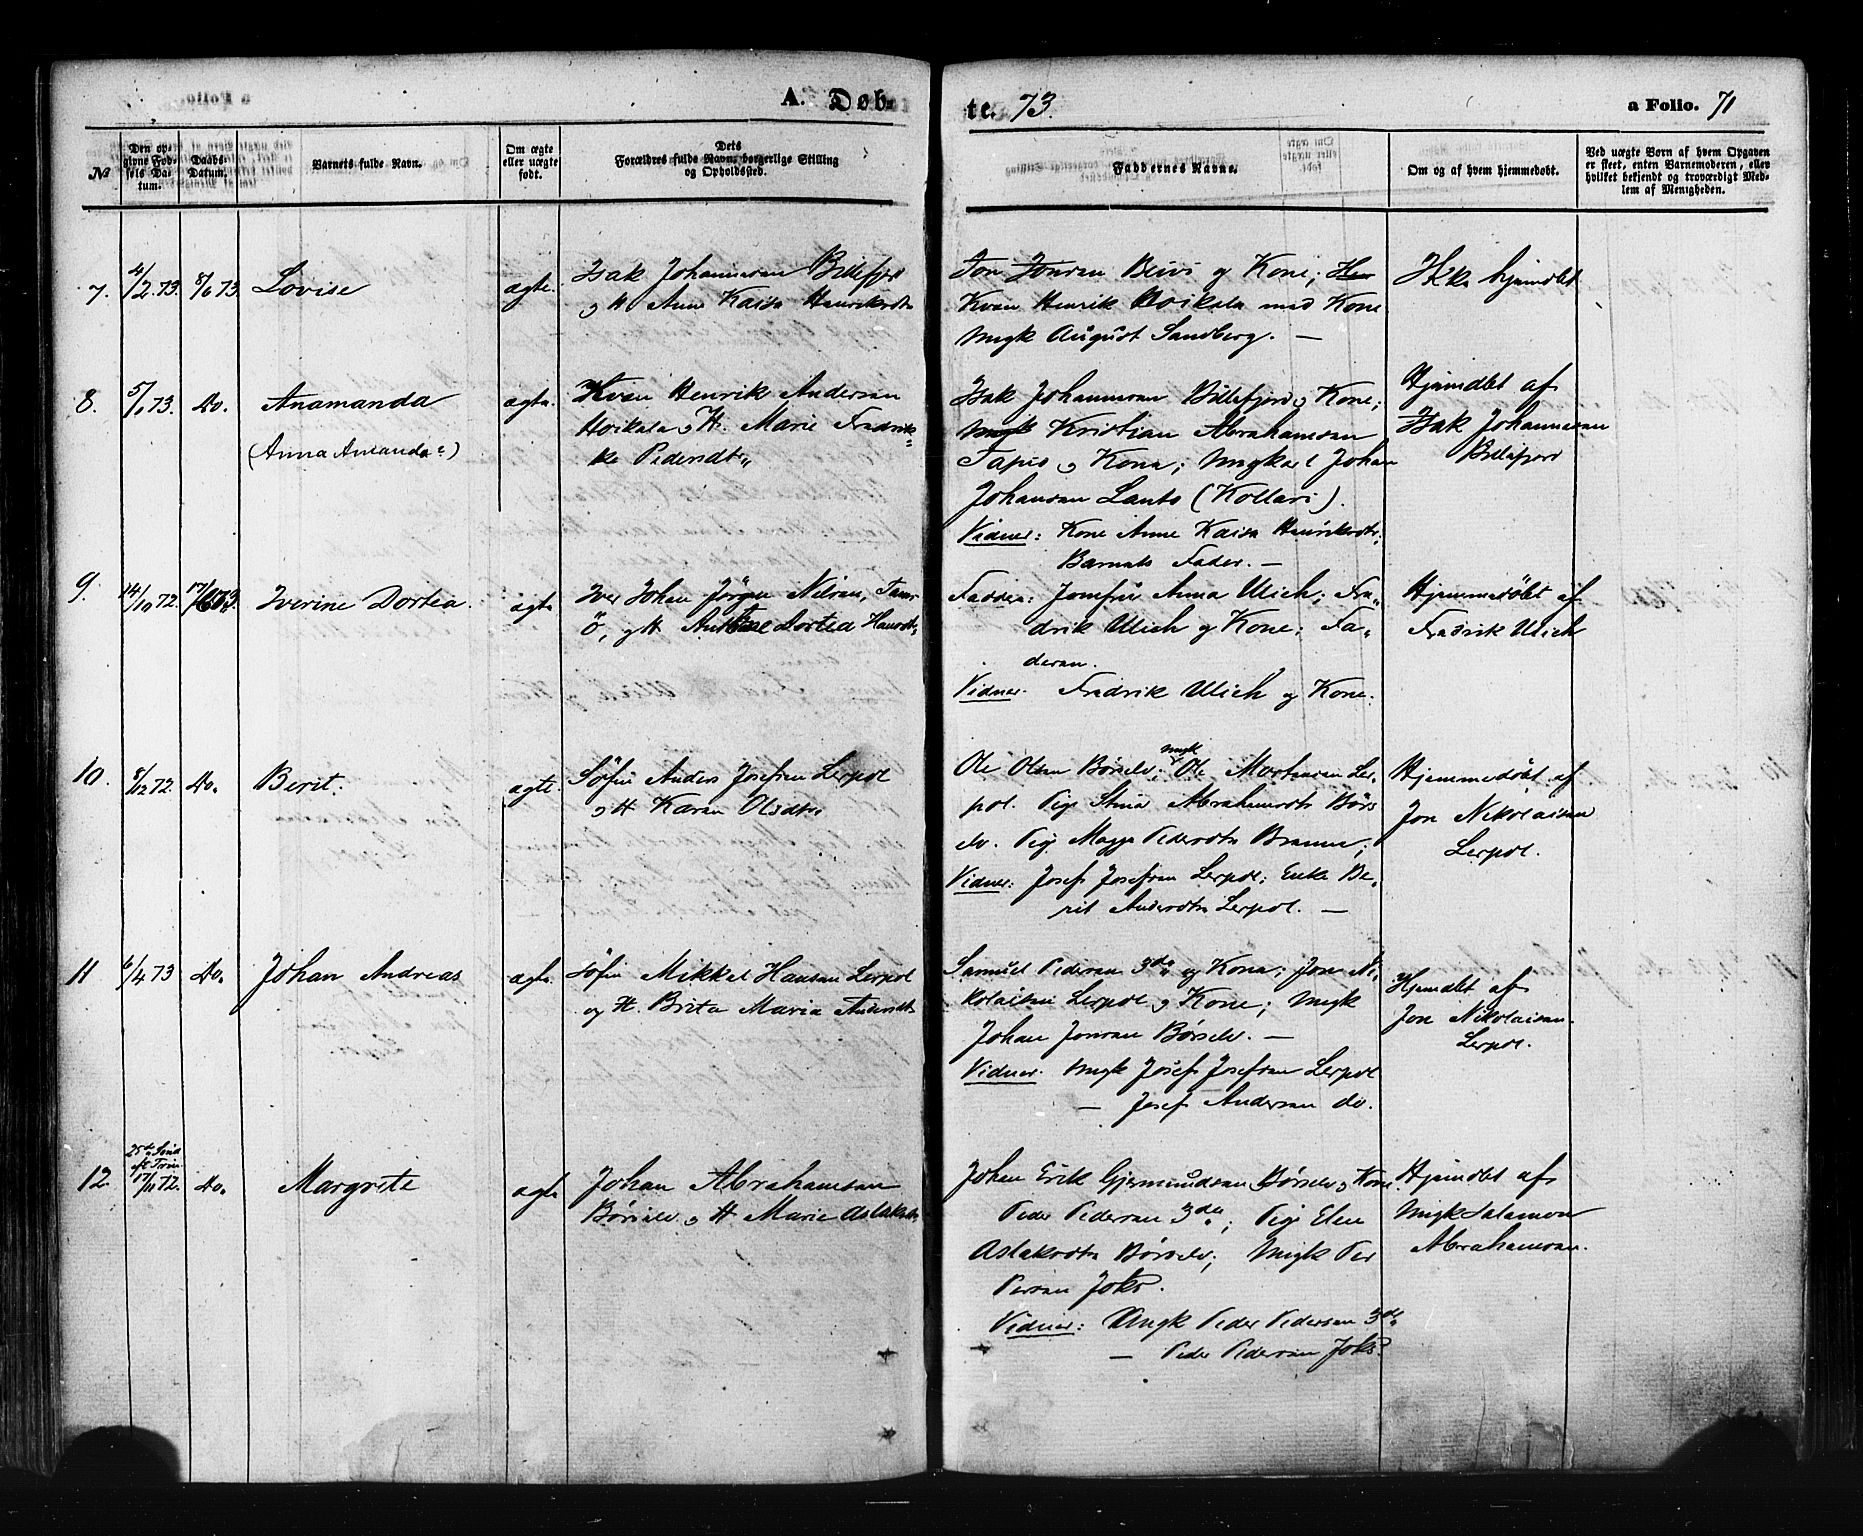 A. Døb-
te. 73.
a Folio. 71
№
Den op-
givne Fød-
sels Da-
tum.
Daabs-
Datum.
Barnets fulde Navn.
Om ægte
eller uægte
født.
Dets
Forældres fulde Navn, borgerlige Stilling
og Opholdssted.
Faddernes Navne.
Om og af hvem hjemmedøbt.
Ved uægte Børn af hvem Opgaven
er skeet, enten Barnemoderen, eller
hvilket bekjendt og troværdigt Med-
lem af Menigheden.
7. 4/2.73. 8/6 73. Lovise ægte.
Isak Johannesen Billefjord
og H. Anne Kaisa Henriksdtr
Jon Jonsen Beivi og Kone;
Kvæn Henrik Hoikala med Kone
Ungk August Sandberg. —
Ikke hjemdbt
8. 5/1 73. Do. Anamanda ægte.
(Anna Amanda?)
Kvæn Henrik Andersen
Hoikala og H. Marie Fredrik-
ke Pedersdtr.
Isak Johannesen Billefjord og Kone;
Kristian Abrahamsen
Tapio og Kone; Ungkarl Johan
Johansen Lanto (Kollari).
Vidner: Kone Anne Kaisa Henriksdtr.
Barnets Fader. —
Hjemdbt af
Isak Johannesen
Billefjord
9. 14/10 72. 17/6 73. Iverine Dortea. ægte
Iver Johan Jørgen Nilsen, Tam-
ø, og H. Dortea Hansdtr.
Faddere: Jomfru Anna Ulich; Fre-
drik Ulich og Kone; Fa-
deren.
Vidner. Fredrik Ulich og Kone.
Hjemmedøbt af
Fredrik Ulich
10. 8/12 72. Do. Berit. ægte.
Søfin Anders Josefsen Lerpol
og H Karen Olsdtr.
Ole Olsen Børselv; ungk Ole Mortensen Ler-
pol. Pige Stina Abrahamsdtr Børs
elv. Pig. Magga Pedersdtr Brenna;
Vidner: Josef Josefsen Lerpol; Enke Be-
rit Andersdtr Lerpol. —
Hjemmedøbt af
Jon Nikolaisen
Lerpol.
11 6/4 73 Do. Johan Andreas ægte.
Søfin Mikkel Hansen Lerpol
og H. Brita Maria Andersdtr
Samuel Pedersen 3de og Kone; Jon Ni-
kolaisen Lerpol og Kone; Ungk
Johan Jonsen Børselv. —
Vidner. Ungk Josef Josefsen Lerpol
— Josef Andersen do.
Hjemdbt af
Jon Nikolaisen
Lerpol.
12. 25de Sønd
eft Trin.
17/11 72. Do. Margrete ægte
Johan Abrahamsen
Børselv og H Marie Aslaksdtr
Johan Erik Gjermundsen Børselv og Kone.
Peder Pedersen 3de; Pige Elen
Aslaksdtr Børselv; Ungk Per
Persen Joks.
Vidner: Ungk Peder Pedersen 3de
— Peder Pedersen Joks.
Hjemdbt af
Ungk Salamon
Abrahamsen.